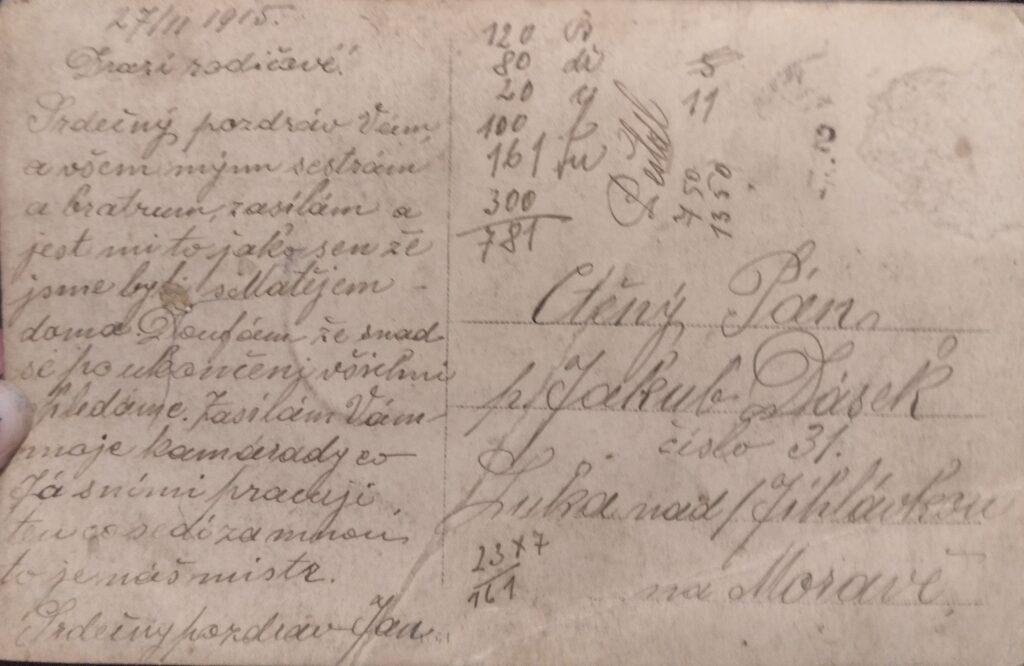 27/11 1915.
Drazí rodičové!
Srdečný pozdráv Vám
a všem mým sestrám
a bratrum, zasílám a
jest mi to jako sen že
jsme byli s Matějem
doma Doufám že snad
se po ukončení všichni
hledáme. Zasílám Vám
moje kamárady co
Já s ními pracuji
ten co sedí za mnou
to je náš mistr.
Srdečny pozdráv Jan
120
80
20 y
100
161
300
781
5
11
7 50
13 50
Ctěný Pán
p. Jakub Dásek
čislo 31.
Luka nad/Jihlávkou
na Moravě
23 x 7
161